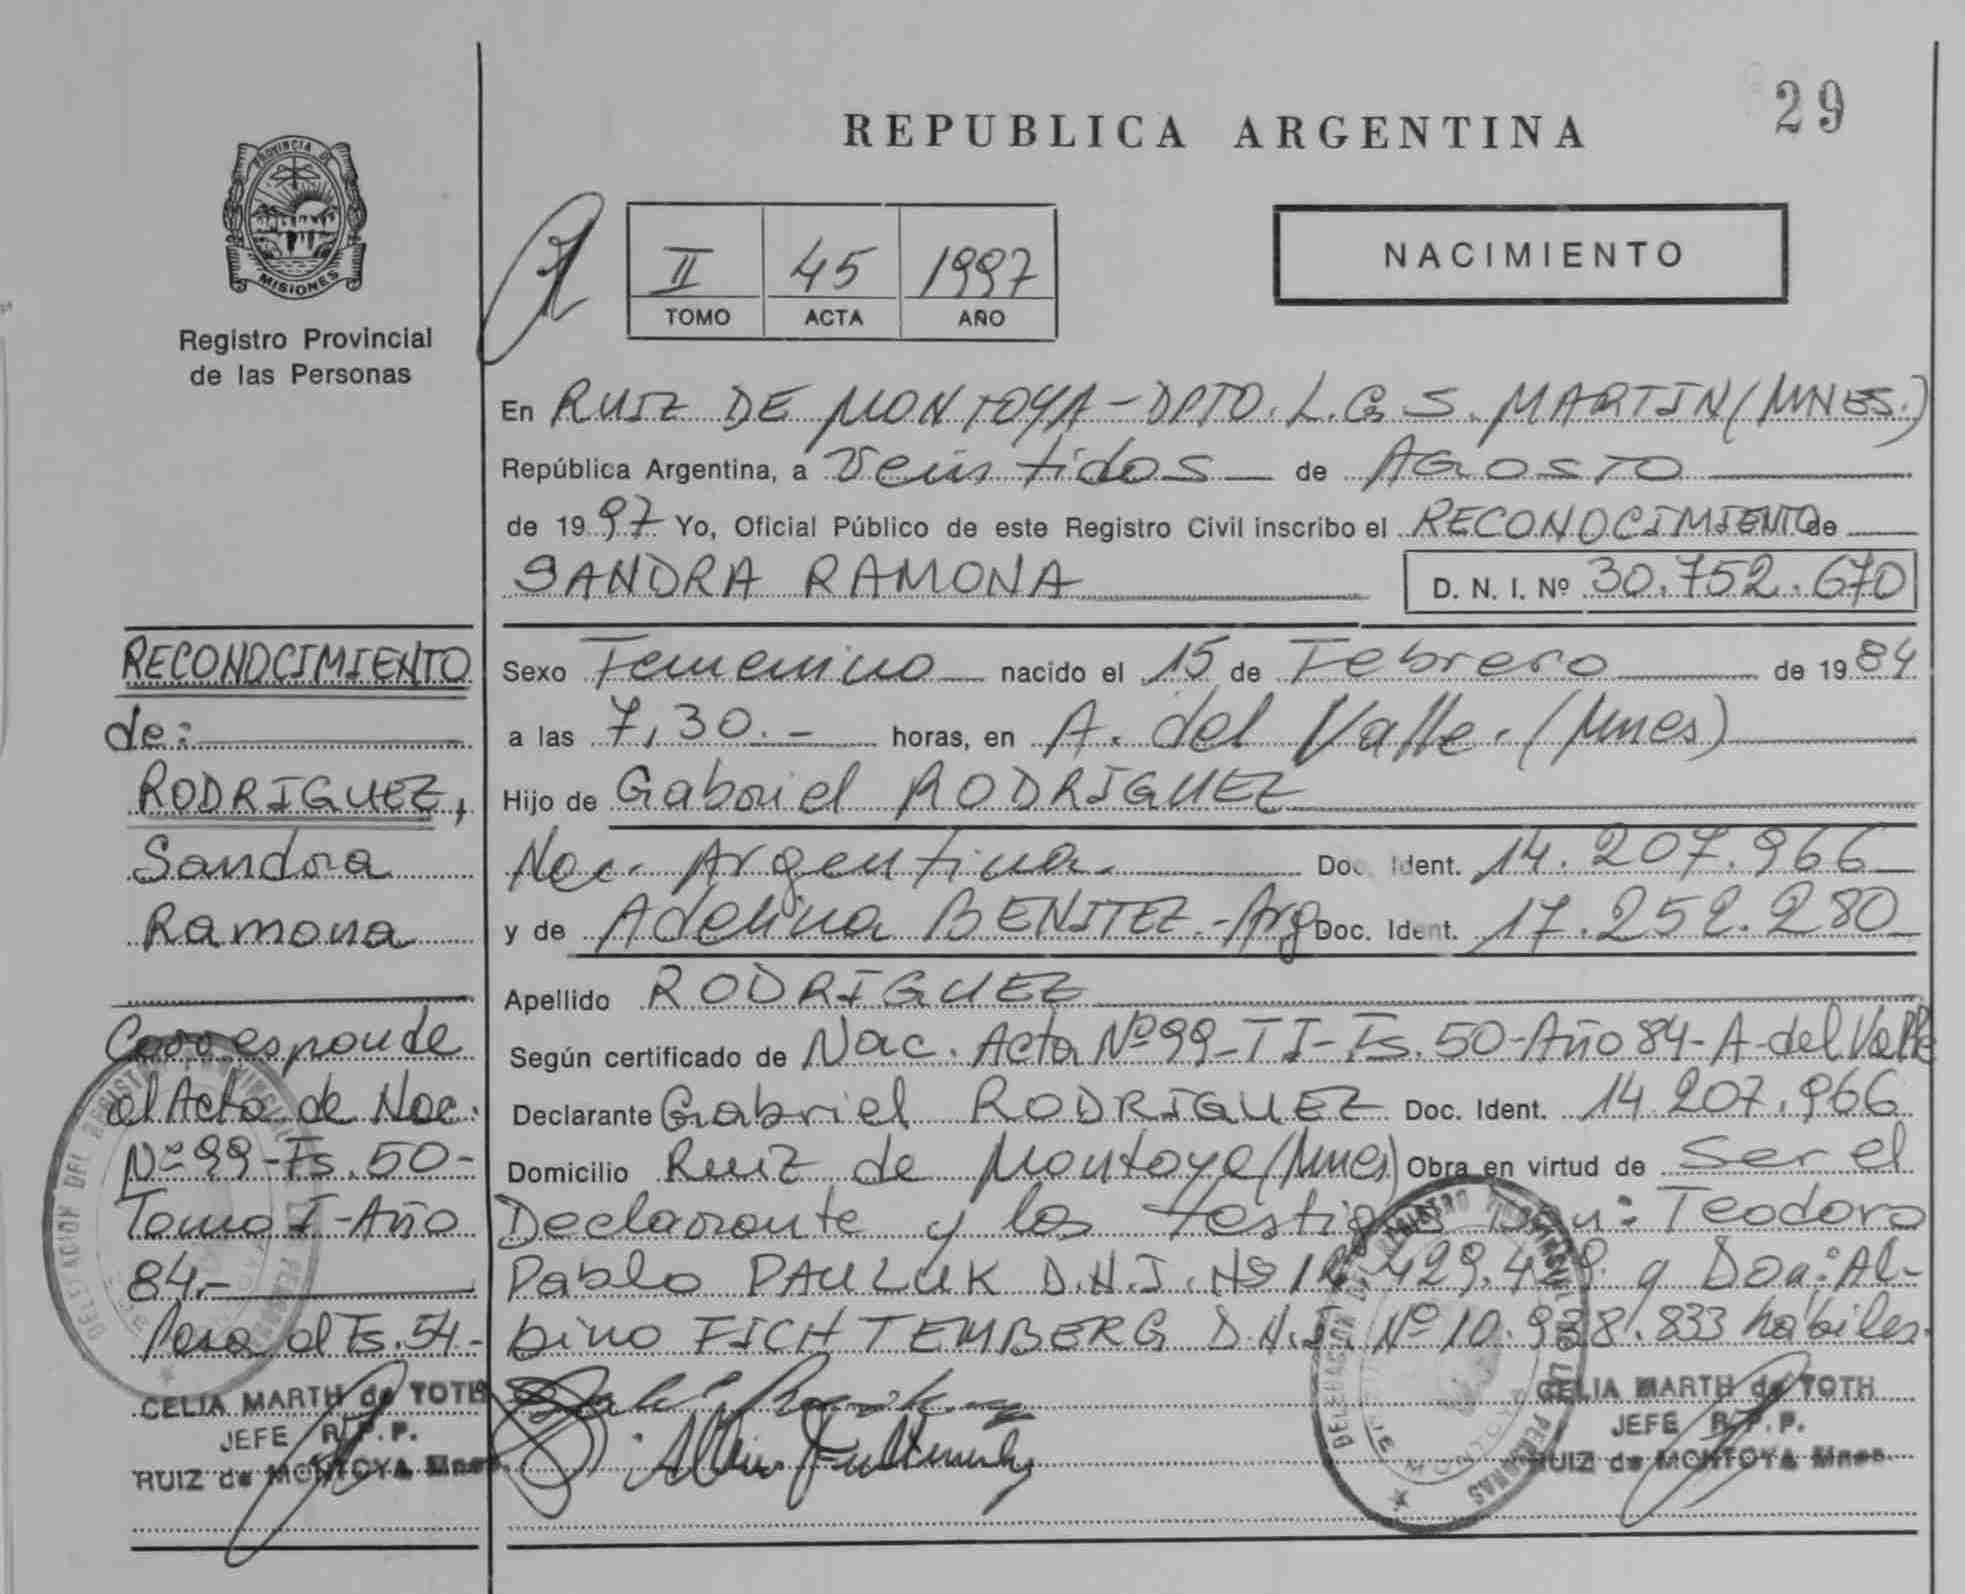 29
REPUBLICA ARGENTINA
PROVINCIA DE
MISIONES
Registro Provincial
de las Personas
II 45 1997
TOMO ACTA AÑO
NACIMIENTO
En RUIZ DE MONTOYA-DPTO. L.G.S. MARTIN (MNES.)
República Argentina, a Veintidos de AGOSTO
de 1997 Yo, Oficial Público de este Registro Civil inscribo el RECONOCIMIENTO de
SANDRA RAMONA D. N. I. Nº 30.752.670
Sexo Femenino nacido el 15 de Febrero de 1984
a las 7,30.- horas, en A. del Valle. (Mnes)
Hijo de Gabriel RODRIGUEZ
Nac. Argentina. Doc. Ident. 14.207.966
y de Adelina BENITEZ.-Arg Doc. Ident. 17.252.280
Apellido RODRIGUEZ
Según certificado de Nac. Acta Nº 99-TI-Fs.50-Año 84-A-del Valle
Declarante Gabriel RODRIGUEZ Doc. Ident. 14 207.966
Domicilio Ruiz de Montoya (Mnes) Obra en virtud de Ser el
Declarante y los testigos Teodoro
Pablo PAULUK D.N.I. Nº y Don: Al-
bino FICHTEMBERG D.N.I. Nº 10.938.833 habiles.
CELIA MARTH de TOTH
JEFE R.P.P.
RUIZ de MONTOYA Mnes.
RECONOCIMIENTO
de:
RODRIGUEZ,
Sandra
Ramona
Corresponde
al Acta de Nac.
Nº 99-Fs.50-
Tomo I-Año
84.-
Pasa al Fs.54.-
CELIA MARTH de TOTH
JEFE R.P.P.
RUIZ de MONTOYA Mnes.